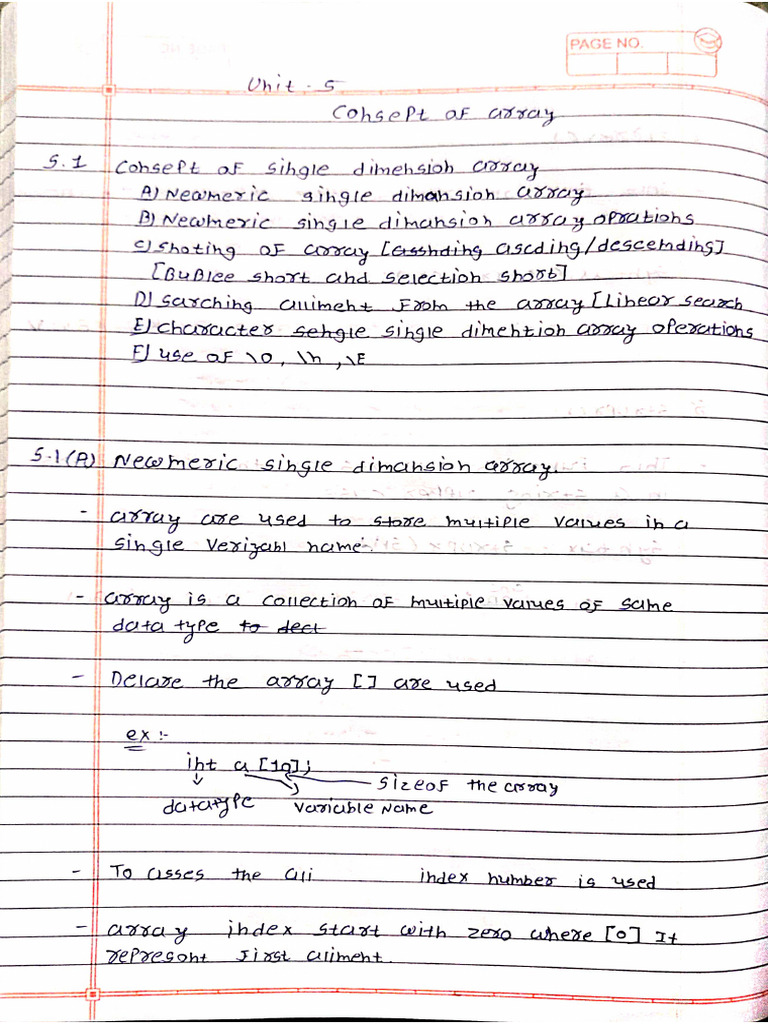 PAGE NO.
Unit - 5
Consept of array
5.1 Consept of single dimension array
A) Newmeric single dimansion array
B) Newmeric single dimansion array oprations
C) Shoting of array [asshding ascding/descemding]
[BuBlee short and selection short]
D) Sarching alliment from the array [Linear search
E) Character sehgle single dimehtion array operations
F) use of \0, \n, \E
5.1(A) Newmeric single dimansion array
- array are used to store multiple values in a
single Verizabl name.
- array is a collection of multiple values of same
data type to dect
- Delare the array [] are used
ex :-
int a [10];
sizeof the array
datatype variable Name
- To asses the all index number is used
- array index start with zero where [0] It
represont first aliment.